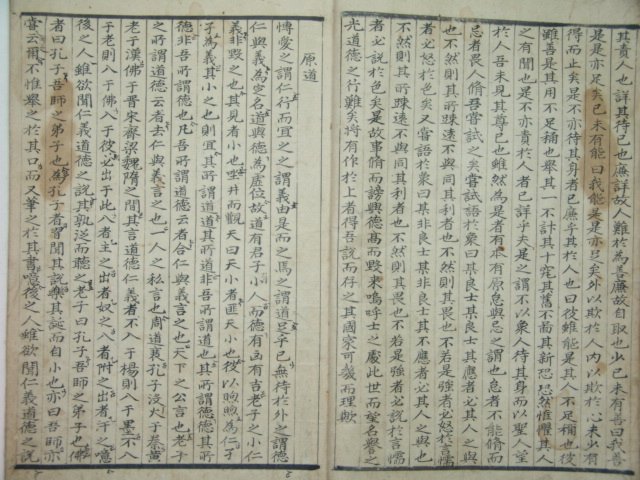 其責人也詳其待己也廉詳故人難於爲善廉故自取也少己未有善曰我善
是是亦足矣己未有能曰我能是是亦足矣外以欺於人內以欺於心未少有
得而止矣是不亦待其身者已廉乎其於人也曰彼雖能是其人不足稱也彼
雖善是其用不足稱也舉其一不計其十究其舊不啚其新恐恐然惟懼其人
之有聞也是不亦責於人者已詳乎夫是之謂不以衆人待其身而以聖人望
於人吾未見其尊己也雖然爲是者有本有原怠與忌之謂也怠者不能脩而
忌者畏人脩吾嘗試之矣嘗試語於衆曰某良士某良士其應者必其人之與
也不然則其所踈遠不與同其利者也不然則其畏也不若是強者必怒於言懦
者必怒於色矣又嘗語於衆曰某非良士某非良士其不應者必其人之與也
不然則其所踈遠不與同其利者也不然則其畏也不若是強者必說於言懦
者必說於色矣是故事脩而謗興德高而毀來嗚呼士之處此世而望名譽之
光道德之行難矣將有作於上者得吾說而存之其國家可幾而理歟
原道
博愛之謂仁行而宜之之謂義由是而之焉之謂道足乎己無待於外之謂德
仁與義爲定名道與德爲虛位故道有君子小人而德有凶有吉老子之小仁
義非毀之也其見者小也坐井而觀天曰天小者匪天小也彼以煦煦爲仁孑
孑爲義其小之也則宜其所謂道道其所道非吾所謂道也其所謂德德其所
德非吾所謂德也凡吾所謂道德云者合仁與義言之也天下之公言也老子
之所謂道德云者去仁與義言之也一人之私言也周道衰孔子沒火于秦黃
老于漢佛于晉宋齊梁魏隋之間其言道德仁義者不入于楊則入于墨不入
于老則入于佛入于彼必出于此入者主之出者奴之入者附之出者汙之噫
後之人雖欲聞仁義道德之說其孰從而聽之老子曰孔子吾師之弟子也佛
者曰孔子吾師之弟子也爲孔子者習聞其說樂其誕而自小也亦曰吾師亦
嘗云爾不惟舉之於其口而又筆之於其書噫後之人雖欲聞仁義道德之說